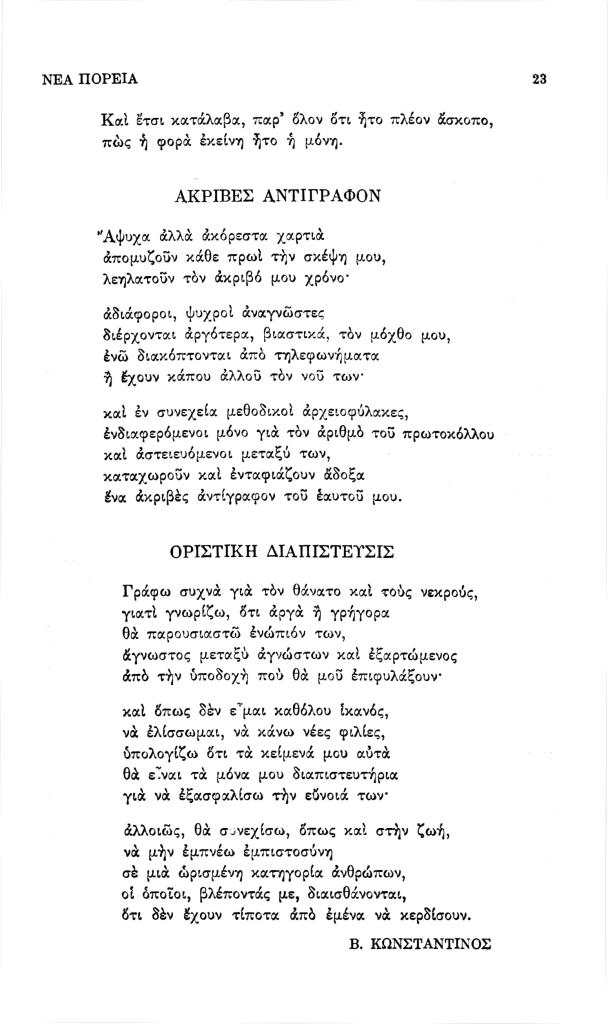 ΝΕΑ ΠΟΡΕΙΑ 23
Καὶ ἔτσι κατάλαβα, παρ' ὅλον ὅτι ἦτο πλέον ἄσκοπο,
πὼς ἡ φορὰ ἐκείνη ἦτο ἡ μόνη.
ΑΚΡΙΒΕΣ ΑΝΤΙΓΡΑΦΟΝ
Ἄψυχα ἀλλὰ ἀκόρεστα χαρτιὰ
ἀπομυζοῦν κάθε πρωὶ τὴν σκέψη μου,
λεηλατοῦν τὸν ἀκριβό μου χρόνο·
ἀδιάφοροι, ψυχροὶ ἀναγνῶστες
διέρχονται ἀργότερα, βιαστικά, τὸν μόχθο μου,
ἐνῶ διακόπτονται ἀπὸ τηλεφωνήματα
ἢ ἔχουν κάπου ἀλλοῦ τὸν νοῦ των·
καὶ ἐν συνεχεία μεθοδικοὶ ἀρχειοφύλακες,
ἐνδιαφερόμενοι μόνο γιὰ τὸν ἀριθμὸ τοῦ πρωτοκόλλου
καὶ ἀστειευόμενοι μεταξύ των,
καταχωροῦν καὶ ἐνταφιάζουν ἄδοξα
ἕνα ἀκριβὲς ἀντίγραφον τοῦ ἑαυτοῦ μου.
ΟΡΙΣΤΙΚΗ ΔΙΑΠΙΣΤΕΥΣΙΣ
Γράφω συχνὰ γιὰ τὸν θάνατο καὶ τοὺς νεκρούς,
γιατὶ γνωρίζω, ὅτι ἀργὰ ἢ γρήγορα
θὰ παρουσιαστῶ ἐνώπιόν των,
ἄγνωστος μεταξὺ ἀγνώστων καὶ ἐξαρτώμενος
ἀπὸ τὴν ὑποδοχὴ ποὺ θὰ μοῦ ἐπιφυλάξουν·
καὶ ὅπως δὲν εἶμαι καθόλου ἱκανός,
νὰ ἑλίσσωμαι, νὰ κάνω νέες φιλίες,
ὑπολογίζω ὅτι τὰ κείμενά μου αὐτὰ
θὰ εἶναι τὰ μόνα μου διαπιστευτήρια
γιὰ νὰ ἐξασφαλίσω τὴν εὔνοιά των·
ἀλλοιῶς, θὰ συνεχίσω, ὅπως καὶ στὴν ζωή,
νὰ μὴν ἐμπνέω ἐμπιστοσύνη
σὲ μιὰ ὡρισμένη κατηγορία ἀνθρώπων,
οἱ ὁποῖοι, βλέποντάς με, διαισθάνονται,
ὅτι δὲν ἔχουν τίποτα ἀπὸ ἐμένα νὰ κερδίσουν.
Β. ΚΩΝΣΤΑΝΤΙΝΟΣ